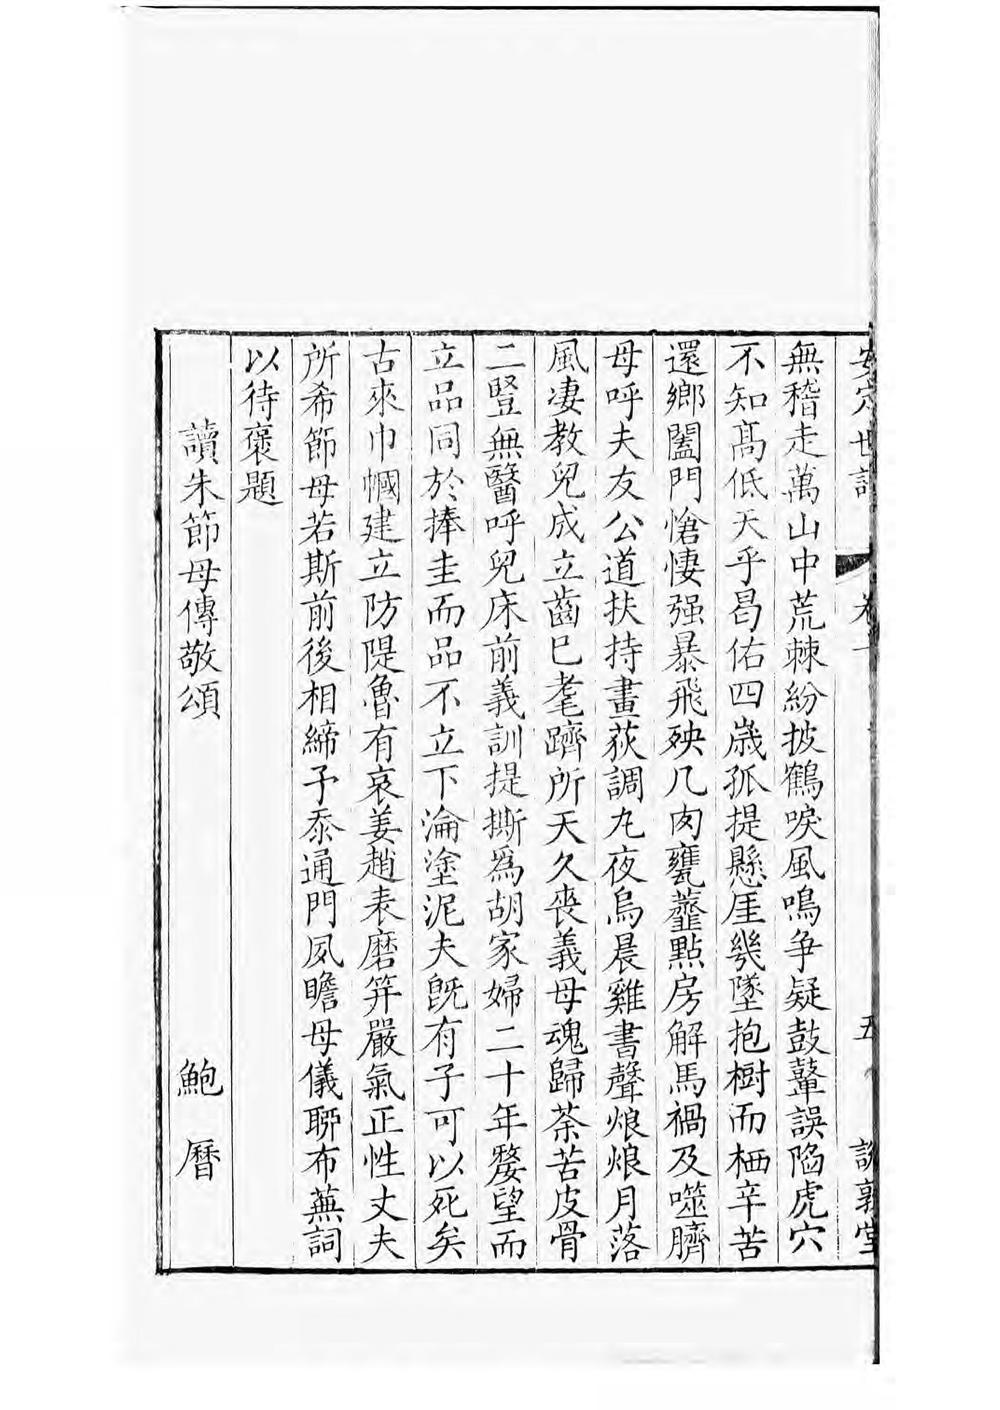 無稽走萬山中荒棘紛披鶴唳風鳴争疑鼓鼙誤陷虎穴
不知髙低天乎曷佑四嵗孤提懸厓幾墜抱樹而栖辛苦
還鄉闔門愴悽强暴飛殃几肉甕虀點房解馬禍及噬臍
母呼夫友公道扶持畫荻調丸夜烏晨雞書聲烺烺月落
風凄教兒成立齒已耄躋所天久喪義母魂歸荼苦皮骨
二豎無醫呼兒床前義訓提撕爲胡家婦二十年嫠望而
立品同於捧圭而品不立下淪塗泥夫旣有子可以死矣
古來巾幗建立防隄魯有哀姜趙表磨笄嚴氣正性丈夫
所希節母若斯前後相締予忝通門夙瞻母儀聊布蕪詞
以待褒題
讀朱節母傳敬頌 鮑曆